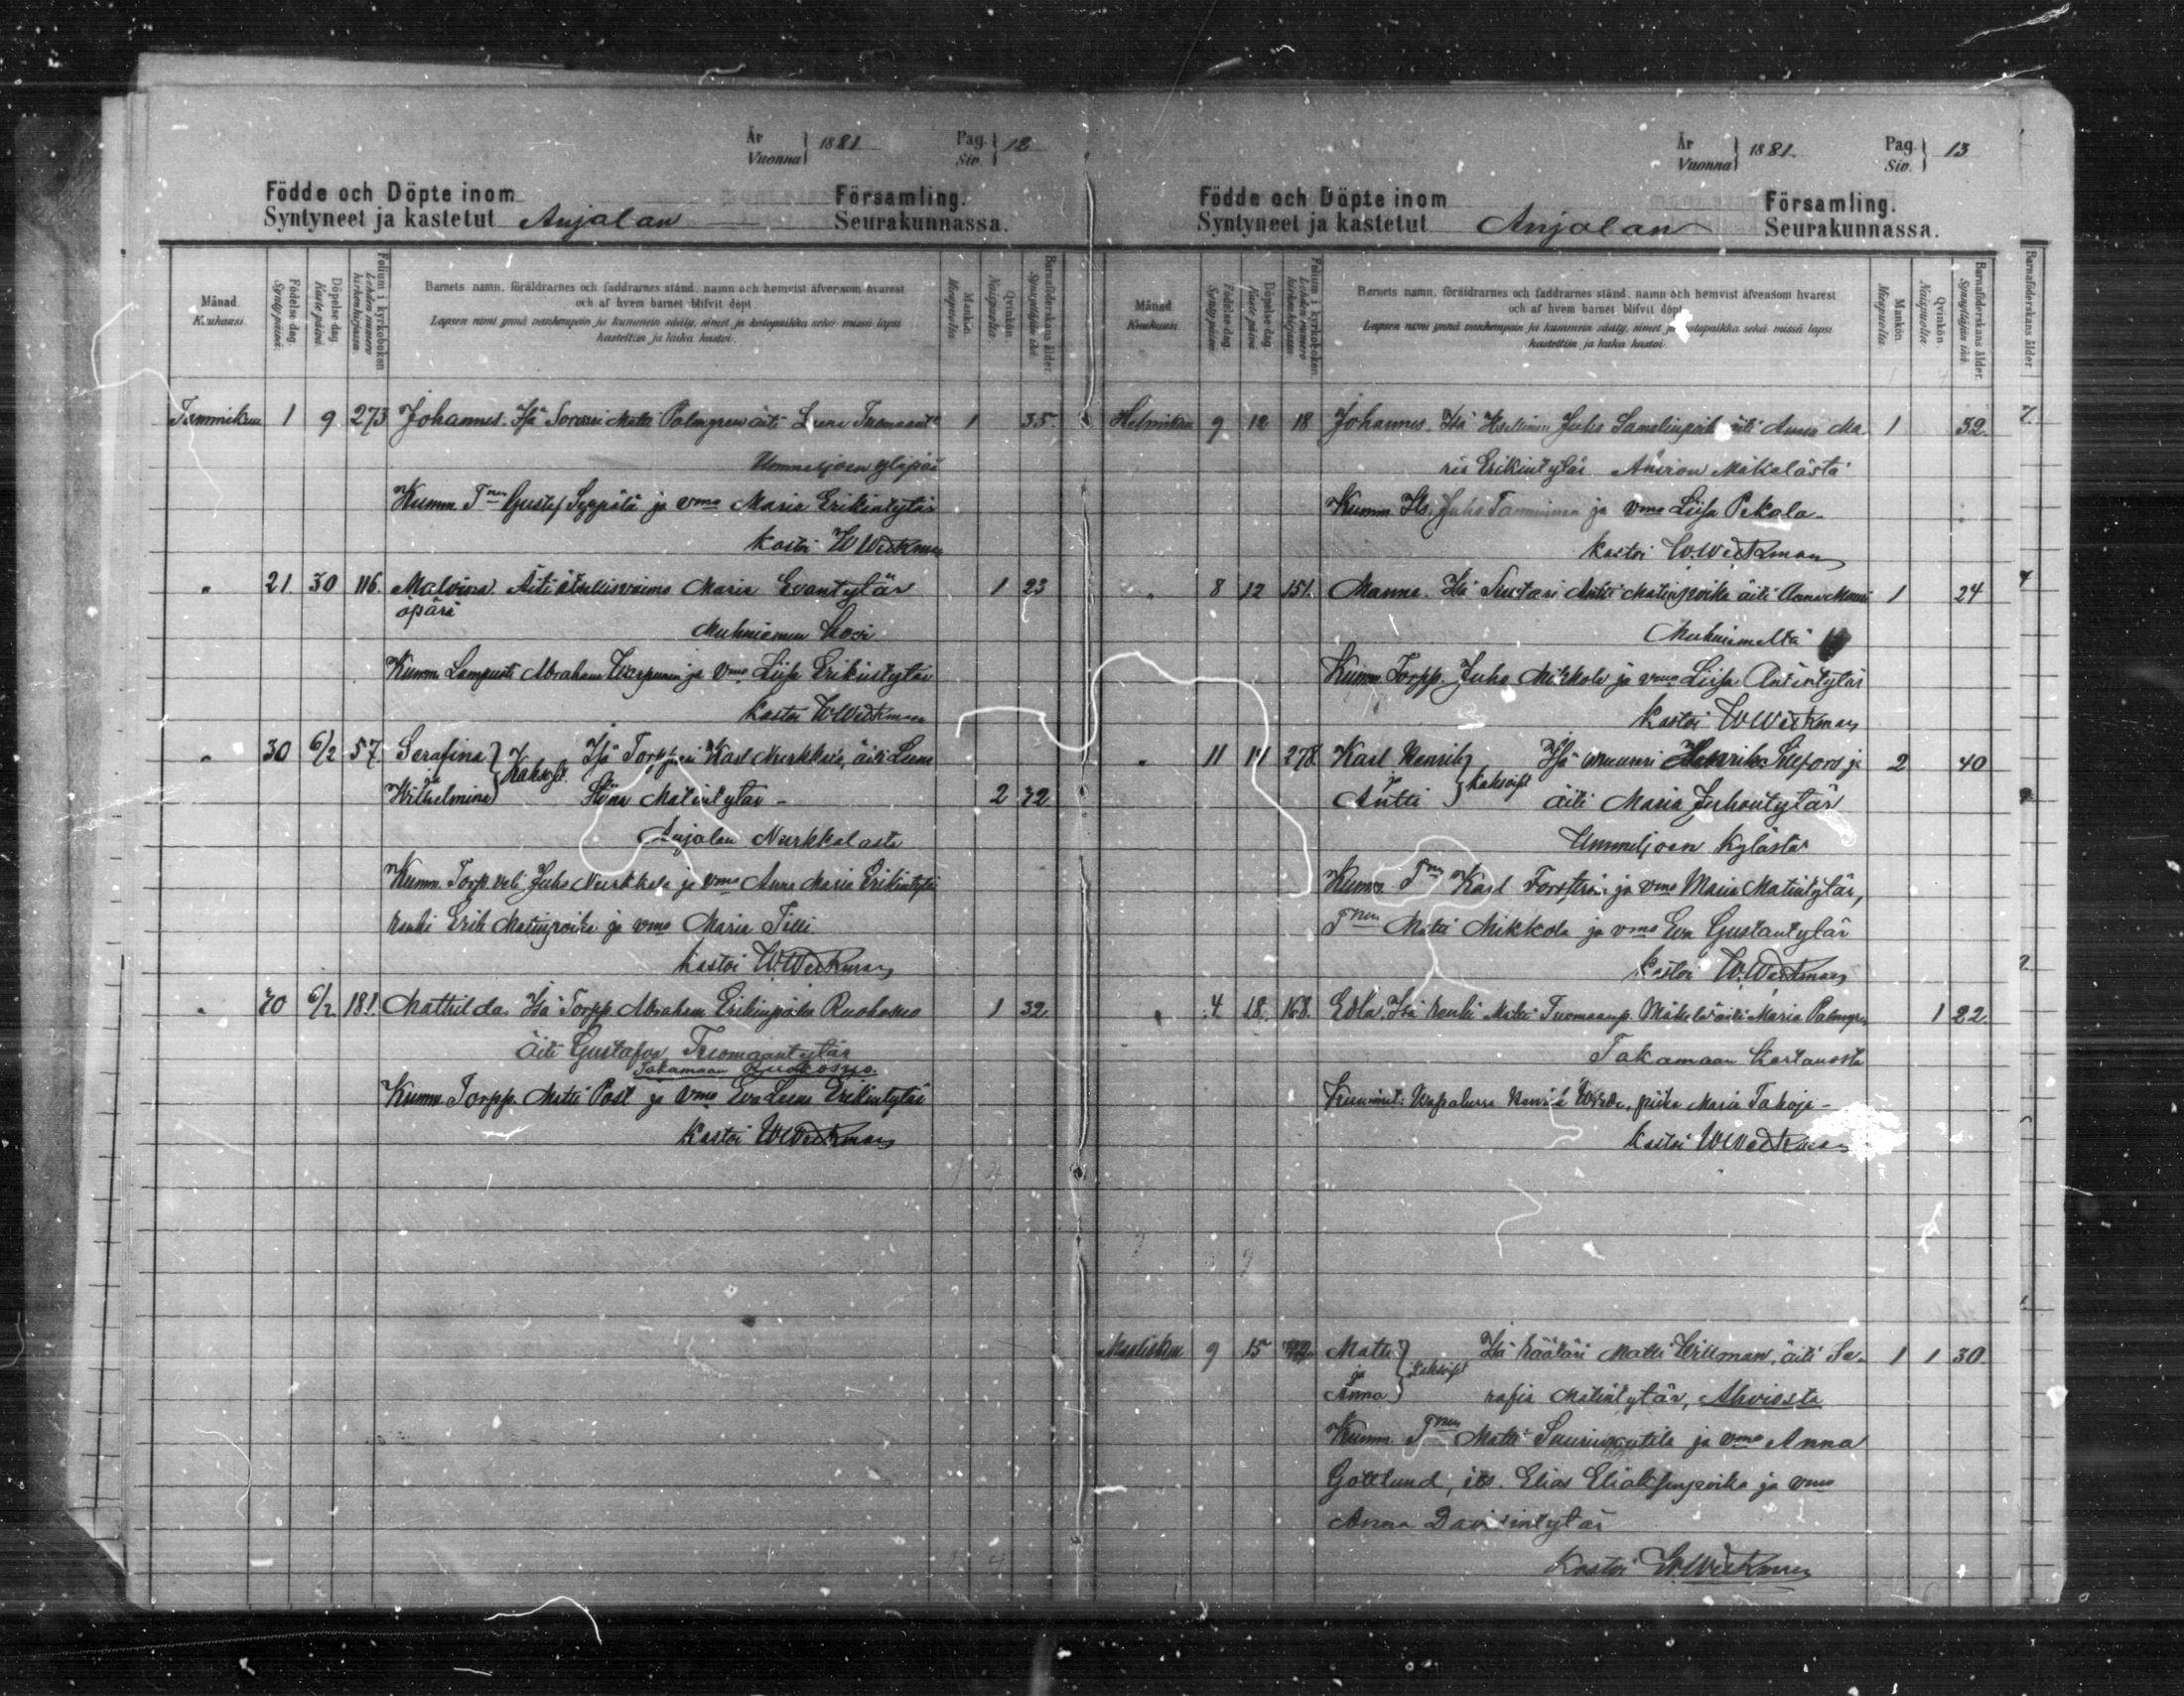 År Vuonna } 1881 Pag. Siv. } 12
Födde och Döpte inom Församling.
Syntyneet ja kastetut Anjalan Seurakunnassa.
Månad. Kuukausi.
Födelse dag. Synty päivä.
Döpelse dag. Kaste päivä.
Folium i kyrkoboken Lehden numero kirkonkirjassa.
Barnets namn, föräldrarnes och faddrarnes stånd, namn och hemvist äfvensom hvarest
och af hvem barnet blifvit döpt.
Lapsen nimi ynnä vanhempain ja kummein sääty, nimet ja kotopaikka sekä missä lapsi
kastettiin ja kuka kastoi.
Mankön. Miespuolia.
Qvinkön. Naispuolia.
Barnaföderskans ålder. Synnyttäjän ikä.
Tammikuu 1 9 273 Johannes. Isä Matti Palmgren äiti Leena 1 35.
Ummeljoen yläpää
Kumm. Tnen Gustaf Seppälä ja vmo Maria Erikintytär
kastoi W Weckman
" 21. 30 116. Malvina Äiti itsellisvaimo Maria Evantytär 1 23
äpärä
Muhniemen
Kumm. Lampuoti Abraham ja vmo Liisa Erikintytär
kastoi W Weckman
" 30 6/2 57. Serafina } kaksoist. Isä Torppari Karl Nurkkala, äiti Leena
ja
Wilhelmina Stina Matintytär - 2 42
Anjalan Nurkkalasta
Kumm. Torp. veli Juho Nurkkala ja vmo Anna Maria Erikintytär
renki Erik Matinpoika ja vmo Maria Tilli
kastoi W. Weckman
" 20 6/2 181. Mathilda. Isä Torpp. Abraham Erikinpoika Ruohosuo 1 32.
äiti Gustafva Tuomaantytär
Takamaan Ruohosuo.
Kumm. Torpp. Matti Post ja vmo Eva Leena Erikintytär
kastoi W Weckman
År Vuonna } 1881. Pag. Siv. } 13
Födde och Döpte inom Församling.
Syntyneet ja kastetut Anjalan Seurakunnassa.
Månad. Kuukausi.
Födelse-dag. Synty päivä.
Döpelse-dag. Kaste päivä.
Folium i kyrkoboken. Lehden numero kirkonkirjassa.
Barnets namn, föräldrarnes och faddrarnes stånd, namn och hemvist äfvensom hvarest
och af hvem barnet blifvit döpt.
Lapsen nimi ynnä vanhempain ja kummein sääty, nimet ja kotopaikka sekä missä lapsi
kastettiin ja kuka kastoi.
Mankön. Miespuolia.
Qvinkön. Naispuolia
Barnaföderskans ålder. Synnyttäjän ikä.
Barnaföderskans ålder.
Helmikuu 9 12 18 Johannes. Isä Itsellinen Juho äiti Anna Ma- 1 32.
ria Erikintytär Mäkelästä
Kumm. Its. Juho Tamminen ja vmo Liisa Pekola.
kastoi W. Weckman
" 8 12 151. Manne. Isä Suutari Antti Matinpoika äiti Anna 1 24
Muhniemeltä
Kumm. Torpp. Juho Mikkola ja vmo Liisa Antintytär
kastoi W Weckman
" 11 17 278. Karl Henrik } kaksoist Isä muurari Henrik Silfors ja 2 40
ja
Antti äiti Maria Juhontytär
Ummeljoen kylästä
Kumm. Tnen Karl Forsström ja vmo Maria Matintytär,
Tnen Matti Mikkola ja vmo Eva Gustantytär
kastoi W. Weckman
" 4 18. 168. Edla. Isä renki Matti Tuomaanp. Mäkelä äiti Maria Palmgren 1 22.
Takamaan kartanosta
Kummit: Henrik Wrede, piika Maria Tahoja -
kastoi W Weckman
Maaliskuu 9 15 Matti } kaksoist Isä Räätäri Matti Willman, äiti Se- 1 1 30.
ja
Anna rafia Matintytär, Ahviosta
Kumm. Tnen Matti Suuripentilä ja vmo Anna
Gottlund, its. Elias Eliaksenpoika ja vmo
Anna Davidintytär
kastoi W. Weckman